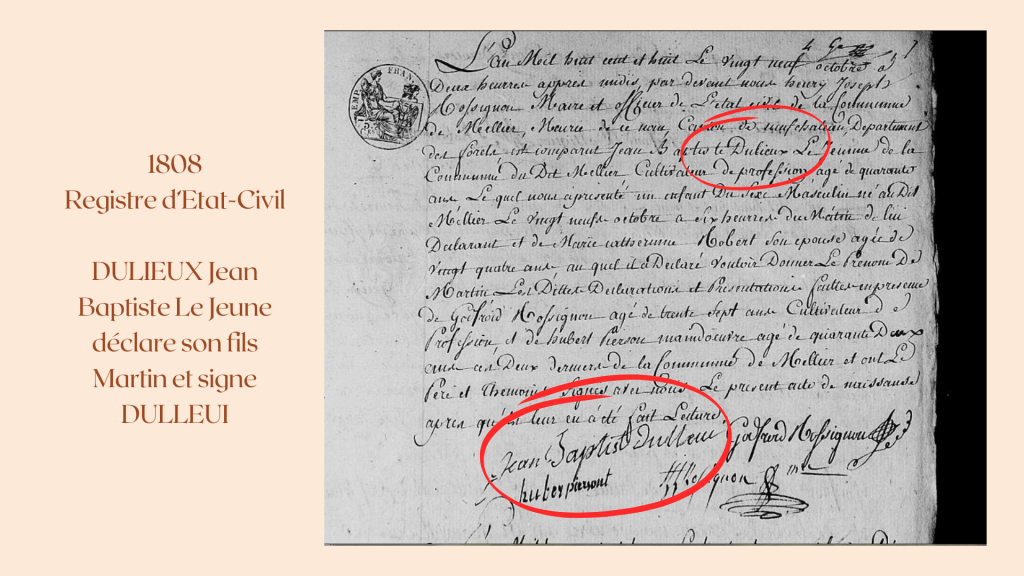 1808
Registre d'Etat-Civil
DULIEUX Jean
Baptiste Le Jeune
déclare son fils
Martin et signe
DULLEUI
L'an Mil huit cent et huit Le vingt neuf octobre a
Deux heures apprés midis, par devent nous henry Joseph
Rossignon Maire et officier de L'Etat civil de la Commune
de Mellier, Meurie de ce nom, Canton de neufchateau, Departement
des forets est comparut Jean Baptiste Dulieux Le Jeunne de la
Commune du Dit Mellier Cultivateur de profession agé de quarante
ans Le quel nous a présenté un enfant Du Sexe Masculin né au Dit
Mellier Le vingt neuf octobre a six heures du Matin de lui
Declarant et de Marie catherinne Robert Son epouse agée de
vingt quatre ans au quel il a Declaré vouloir Donner Le Prenom De
Martin Les Dittes Declarations et Presentations faittes en presence
de Godfroid Rossignon agé de trente Sept ans Cultivateur de
Profession et de hubert Pierson manoeuvre agé de quarante Deux
ans ces Deux derniers de la Commune de Mellier et ont Le
Pere et themoins Signes avec nous Le present acte de naissanse
apres qu'il leur en a été fait Lecture
Jean Baptist Dulleui Godfroid Rossignon
huber piersont HJ Rossignon m